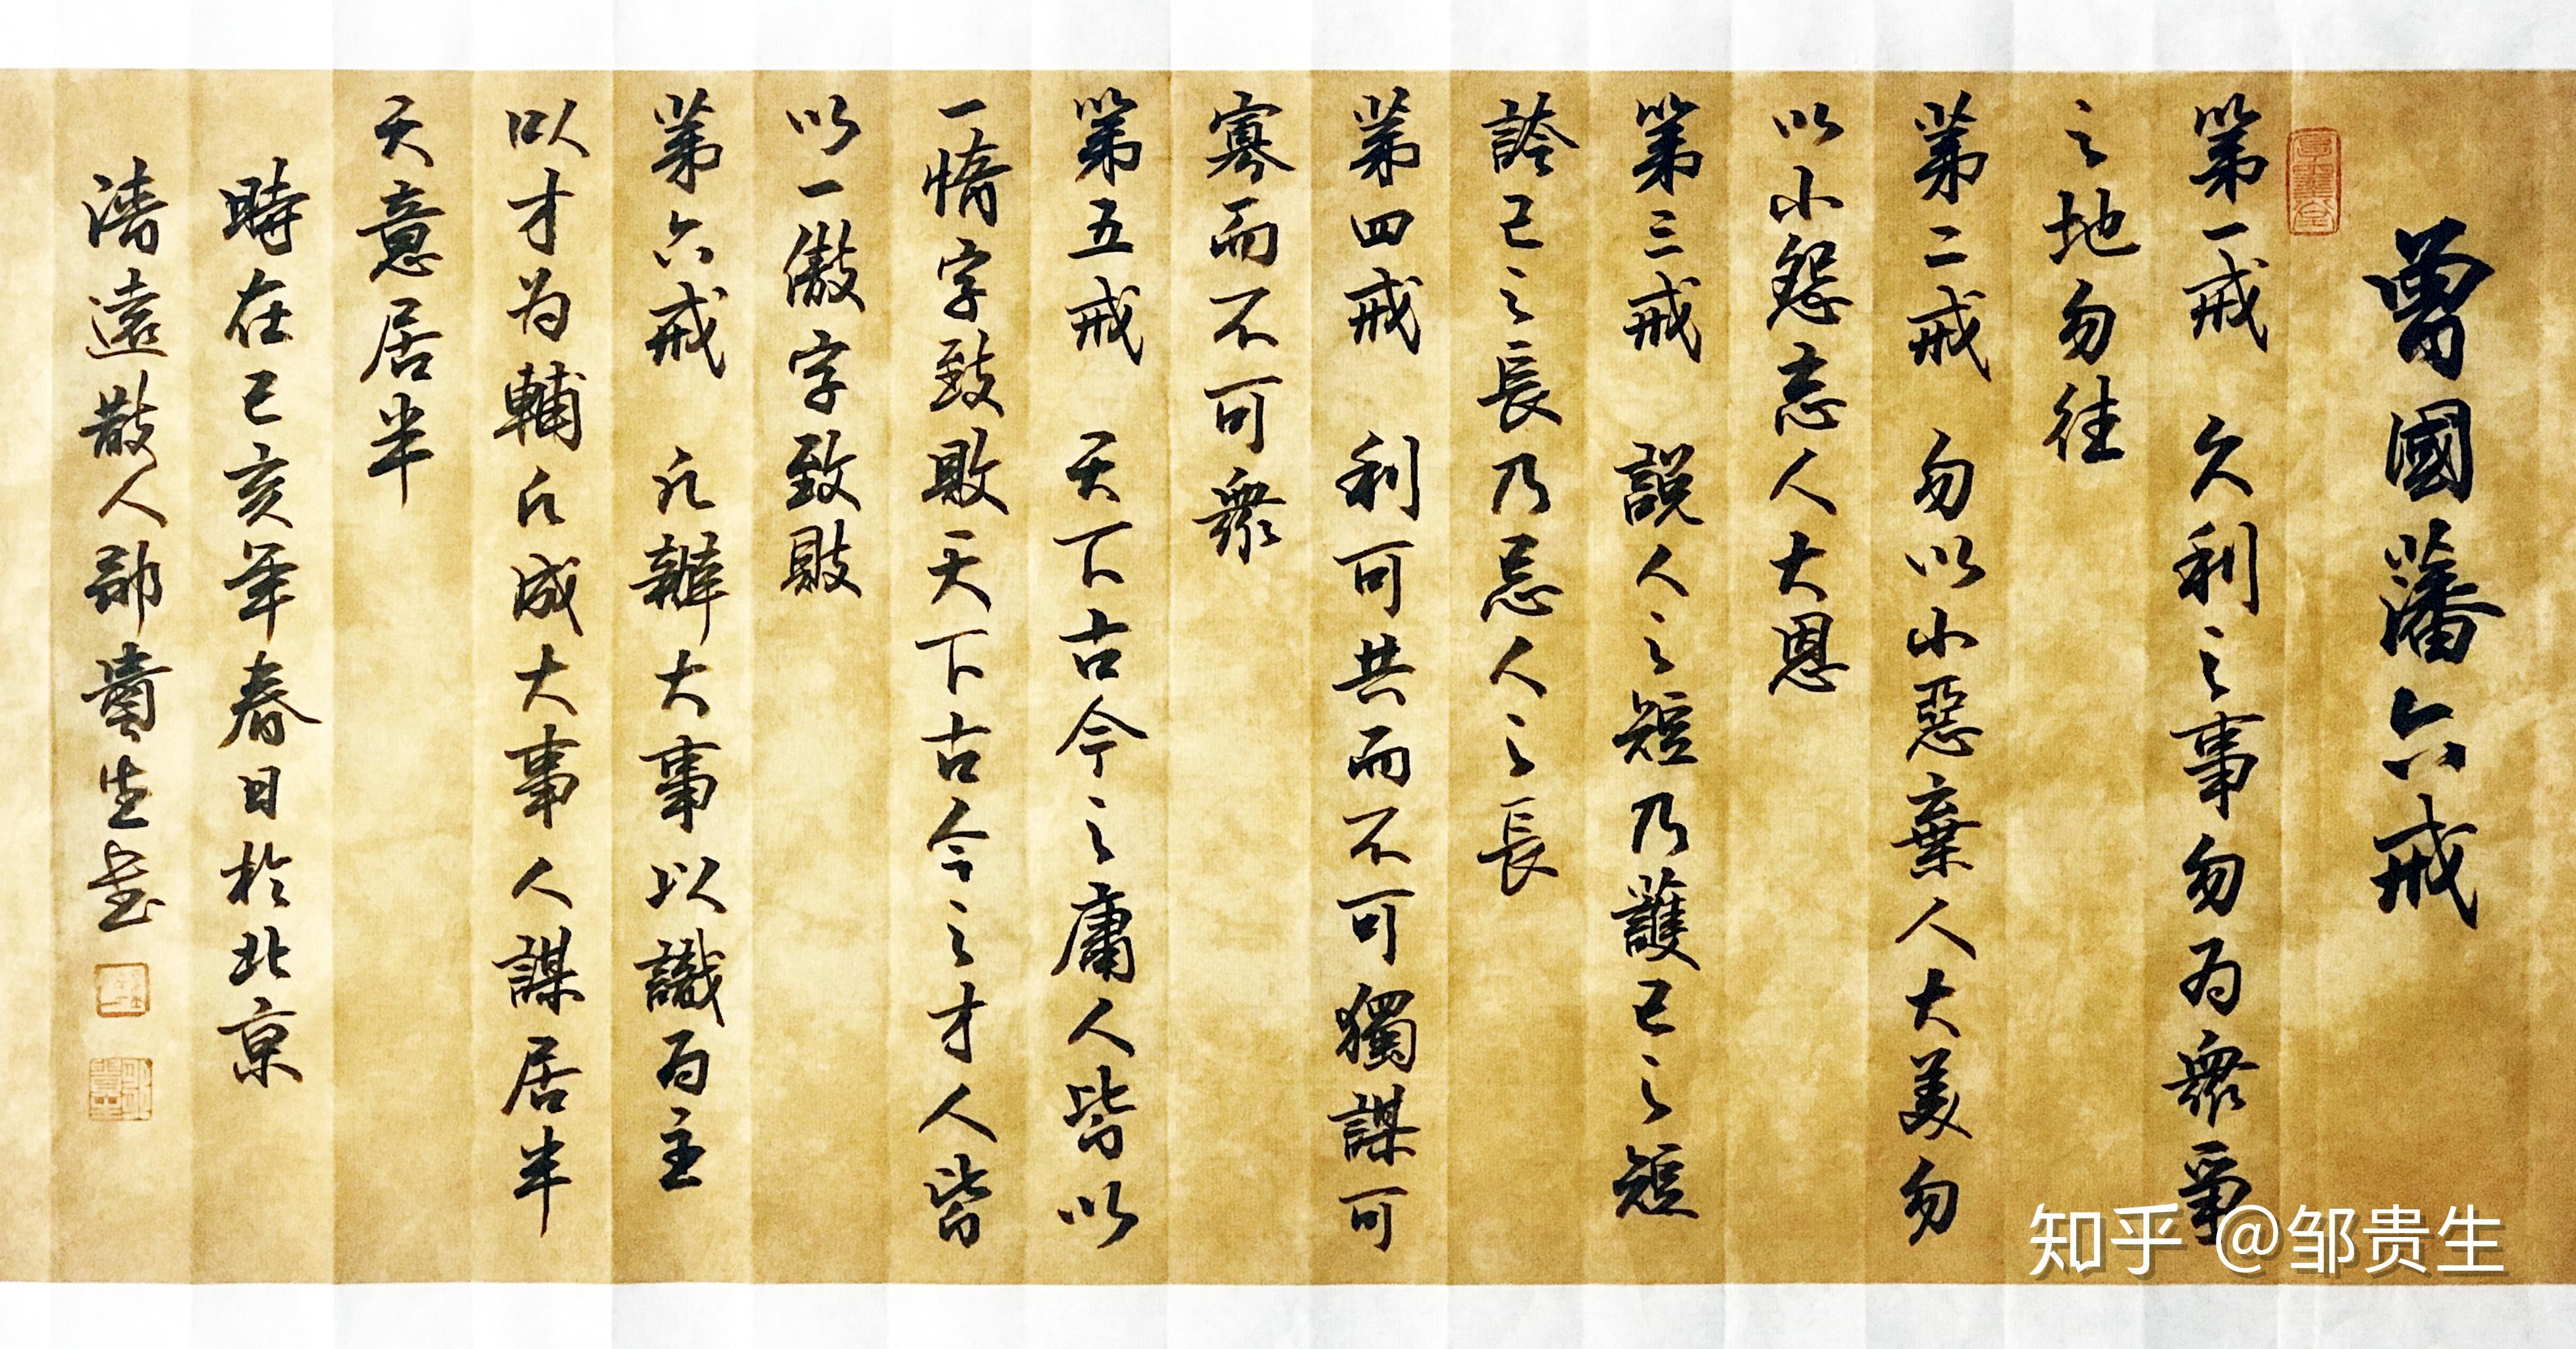 曾國藩六戒
第一戒 久利之事勿為衆爭
之地勿往
第二戒 勿以小惡棄人大美勿
以小怨忘人大恩
第三戒 説人之短乃護己之短
誇己之長乃忌人之長
第四戒 利可共而不可獨謀可
寡而不可衆
第五戒 天下古今之庸人皆以
一惰字致敗天下古今之才人皆
以一傲字致敗
第六戒 凡辦大事以識為主
以才为輔凡成大事人謀居半
天意居半
時在己亥年春日於北京
濤遠散人鄒貴生書
知乎 @邹贵生